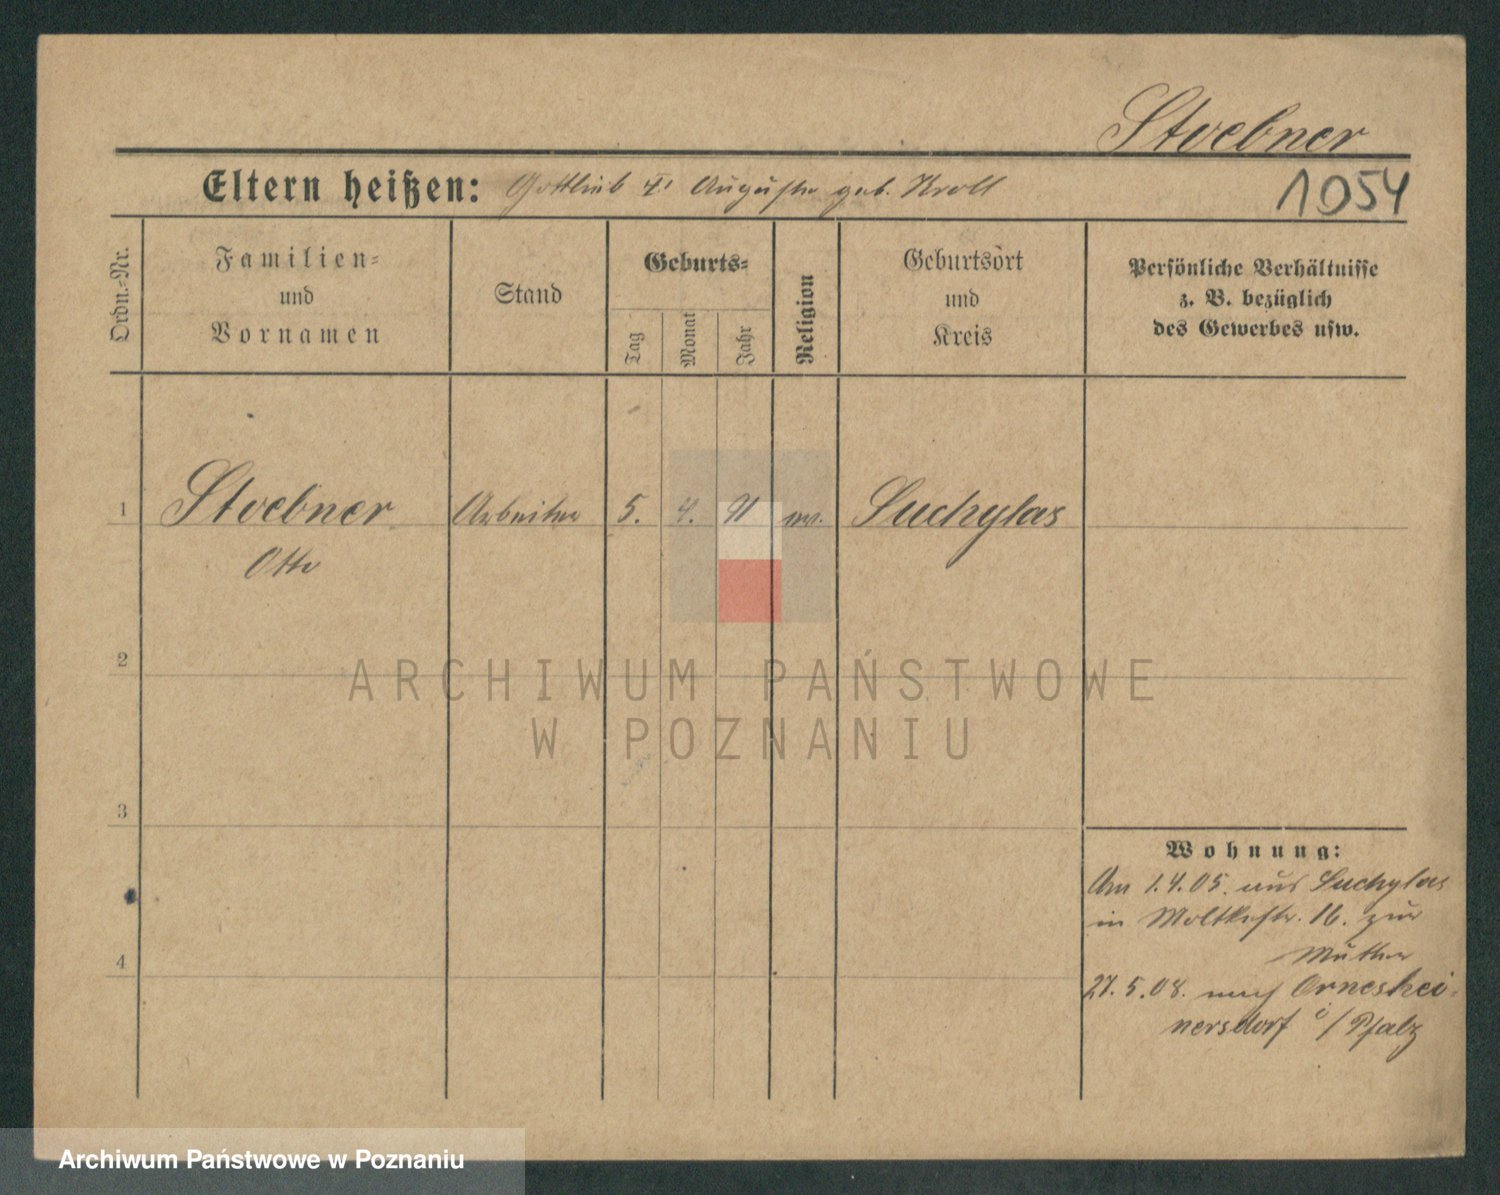 Stoebner
Eltern heißen: Gottlieb u. Auguste geb. Kroll
1054
Ordn.-Nr.
Familien-
und
Vornamen
Stand
Geburts-
Tag
Monat
Jahr
Religion
Geburtsort
und
Kreis
Persönliche Verhältnisse
z. B. bezüglich
des Gewerbes usw.
1 Stoebner Arbeiter 5. 4. 91 ev. Suchylas
Otto
2
ARCHIWUM PAŃSTWOWE
W POZNANIU
3
Wohnung:
Am 1.4.05. aus Suchylas
in Moltkestr. 16. zur
Mutter
4
27.5.08. nach
nersdorf i/Pfalz
Archiwum Państwowe w Poznaniu